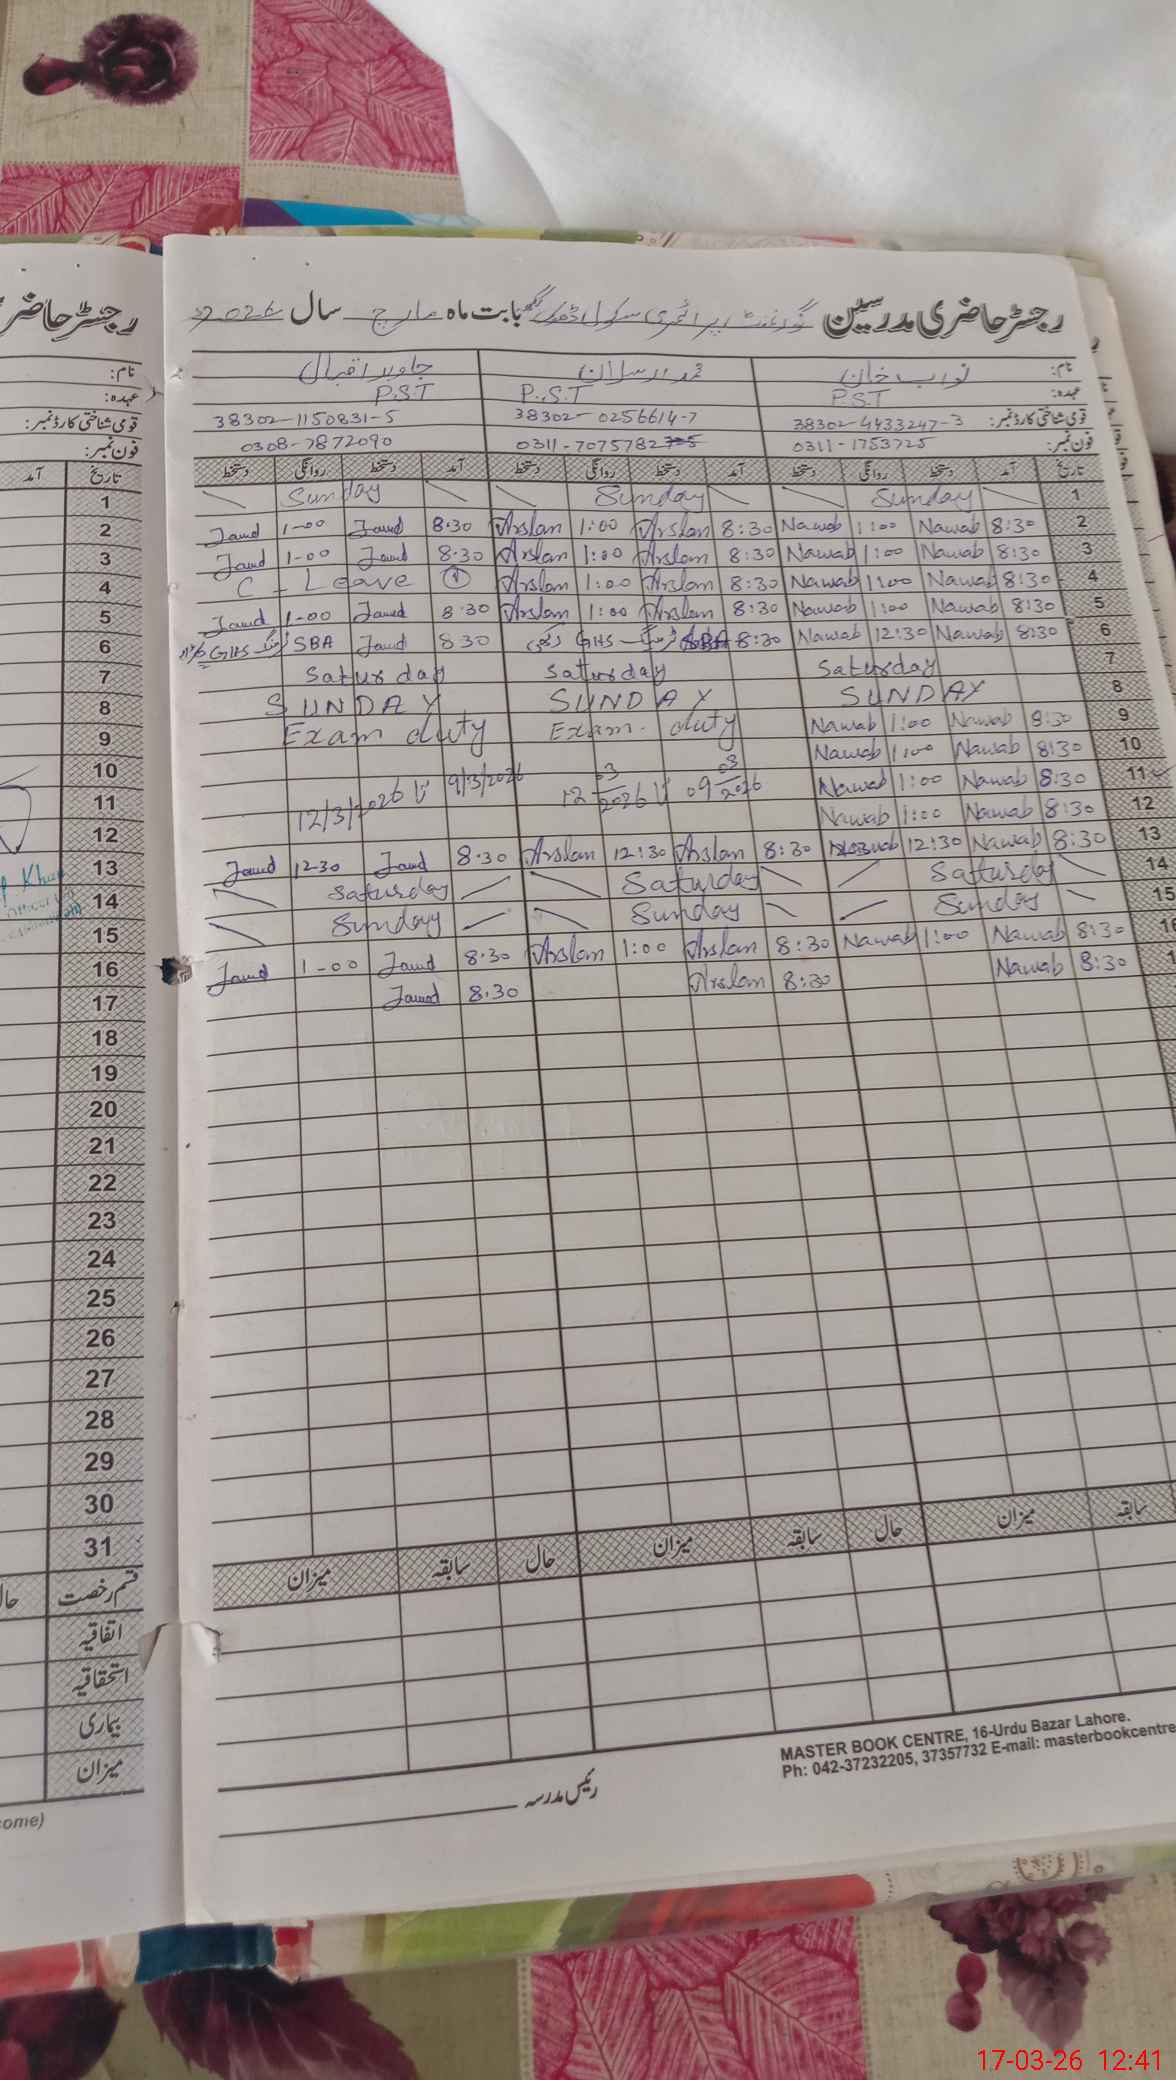 رجسٹر حاضری مدرسین گورنمنٹ پرائمری سکول ڈھوک بابت ماہ مارچ سال 2026
نام: نواب خان محمد ارسلان جاوید اقبال
عہدہ: P.S.T P.S.T P.S.T
قومی شناختی کارڈ نمبر: 38302-4433247-3 38302-0256614-7 38302-1150831-5
فون نمبر: 0311-1753725 0311-7075782 0308-7872090
تاریخ آمد دستخط روانگی دستخط آمد دستخط روانگی دستخط آمد دستخط روانگی دستخط
1 Sunday Sunday Sunday
2 8:30 Nawab 1:00 Nawab 8:30 Arslan 1:00 Arslan 8.30 Javed 1-00 Javed
3 8:30 Nawab 1:00 Nawab 8:30 Arslan 1:00 Arslan 8.30 Javed 1-00 Javed
4 8:30 Nawab 1:00 Nawab 8:30 Arslan 1:00 Arslan C - Leave ①
5 8:30 Nawab 1:00 Nawab 8:30 Arslan 1:00 Arslan 8.30 Javed 1-00 Javed
6 8:30 Nawab 12:30 Nawab 8:30 SBA GHS 8.30 Javed SBA GHS
7 Saturday Saturday Saturday
8 SUNDAY SUNDAY SUNDAY
9 8:30 Nawab 1:00 Nawab Exam. duty Exam duty
10 8:30 Nawab 1:00 Nawab 09 03/2026 تا 12 03/2026 9/3/2026 تا 12/3/2026
11 8:30 Nawab 1:00 Nawab
12 8:30 Nawab 1:00 Nawab
13 8:30 Nawab 12:30 Nawab 8:30 Arslan 12:30 Arslan 8.30 Javed 12-30 Javed
14 Saturday Saturday Saturday
15 Sunday Sunday Sunday
16 8:30 Nawab 1:00 Nawab 8:30 Arslan 1:00 Arslan 8.30 Javed 1-00 Javed
17 8:30 Nawab 8:30 Arslan 8.30 Javed
18
19
20
21
22
23
24
25
26
27
28
29
30
31
سابقہ میزان حال سابقہ میزان حال سابقہ میزان
قسم رخصت
اتفاقیہ
استحقاقیہ
بیماری
میزان
رئیس مدرسہ
MASTER BOOK CENTRE, 16-Urdu Bazar Lahore.
Ph: 042-37232205, 37357732 E-mail: masterbookcentre
رجسٹر حاضر
نام:
عہدہ:
قومی شناختی کارڈ نمبر:
فون نمبر:
تاریخ آمد
17-03-26 12:41